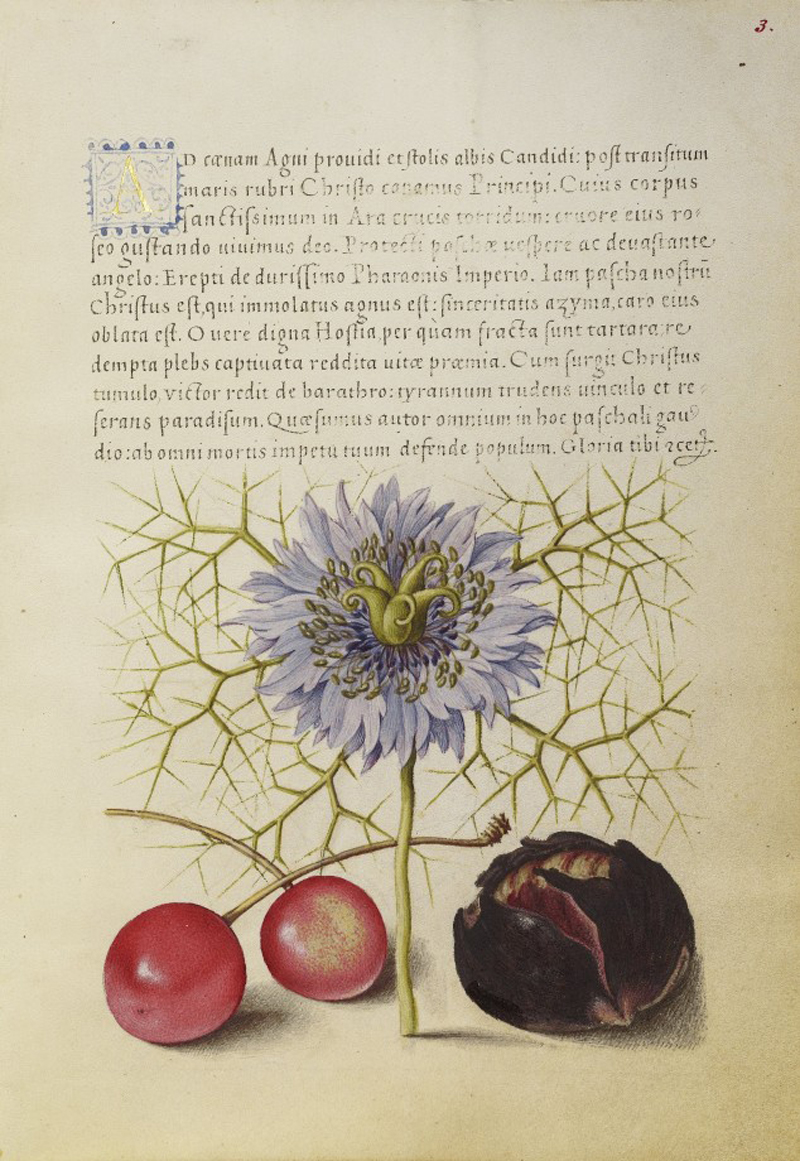 3.
AD cœnam Agni prouidi et stolis albis Candidi: post transitum
maris rubri Christo canamus Principi. Cuius corpus
sanctissimum in Ara crucis torridum: cruore eius ro-
seo gustando uiuimus deo. Protecti paschæ uespere ac deuastante
angelo: Erepti de durissimo Pharaonis Imperio. Iam pascha nostrũ
Christus est, qui immolatus agnus est: sinceritatis azyma, caro eius
oblata est. O uere digna Hostia, per quam fracta sunt tartara: re
dempta plebs captiuata reddita uitæ præmia. Cum surgit Christus
tumulo, victor redit de barathro: tyrannum trudens uinculo et re-
serans paradisum. Quæsumus autor omnium in hoc paschali gau
dio: ab omni mortis impetu tuum defende populum. Gloria tibi